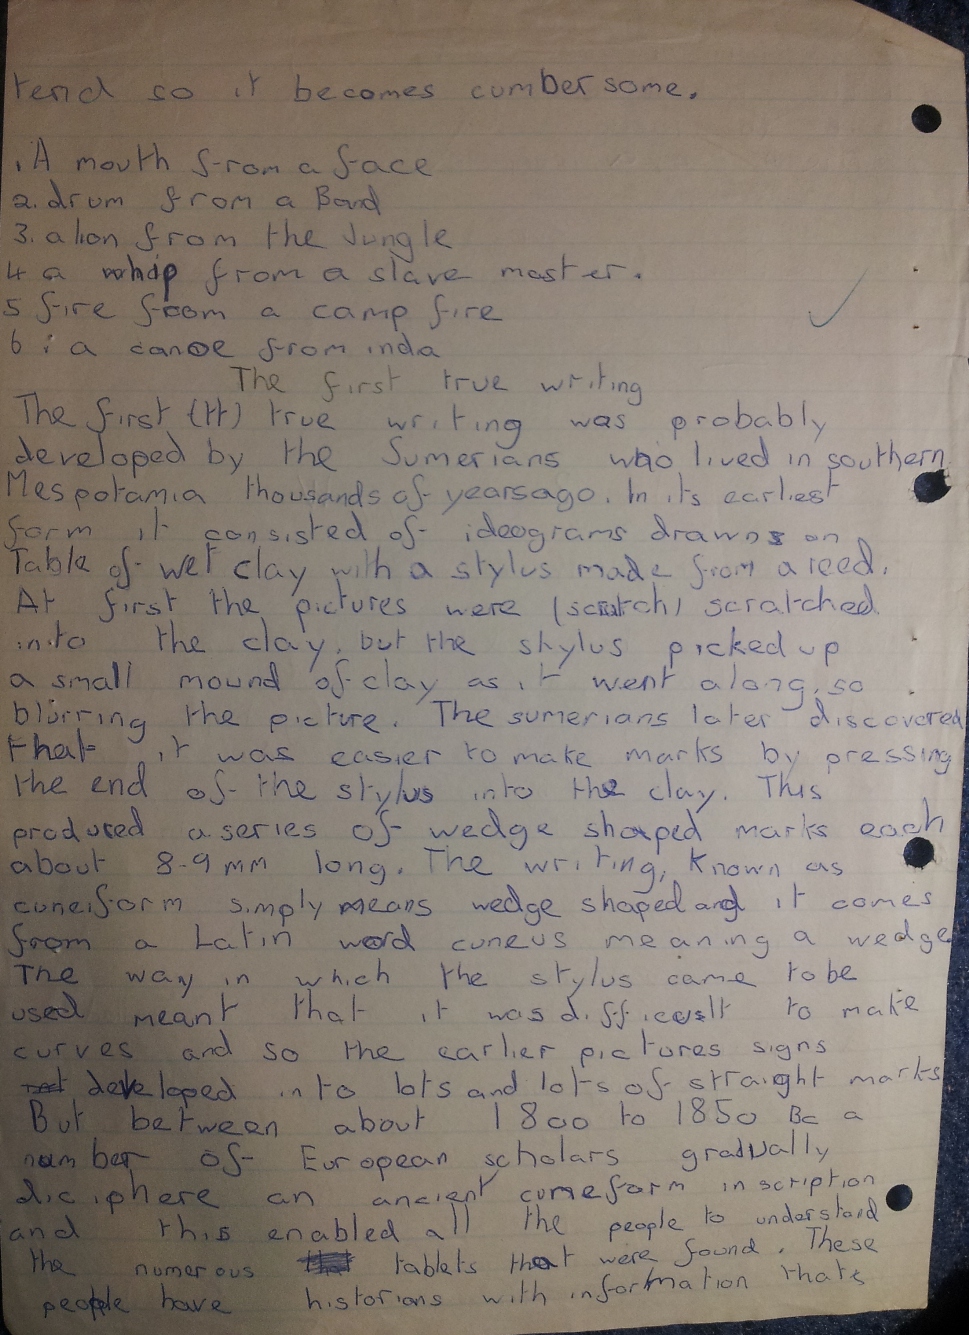 tend so it becomes cumbersome.
1. A mouth from a face
2. drum from a Band
3. a lion from the Jungle
4 a whip from a slave master.
5 fire from a camp fire
6 : a canoe from inda
The first true writing
The first (tt) true writing was probably
developed by the Sumerians who lived in southern
Mespotamia thousands of years ago. In its earliest
form it consisted of ideograms drawns on
Table of wet clay with a stylus made from a reed.
At first the pictures were (scratch) scratched
into the clay, but the stylus picked up
a small mound of clay as it went along, so
blurring the picture. The sumerians later discovered
that it was easier to make marks by pressing
the end of the stylus into the clay. This
produced a series of wedge shaped marks each
about 8-9 mm long. The writing, Known as
cuneiform simply means wedge shaped and it comes
from a Latin word cuneus meaning a wedge
The way in which the stylus came to be
used meant that it was difficult to make
curves and so the earlier pictures signs
developed into lots and lots of straight marks
But between about 1800 to 1850 Bc a
number of European scholars gradually
diciphere an ancient cuneform inscription
and this enabled all the people to understand
the numerous tablets that were found. These
people have historians with information thats